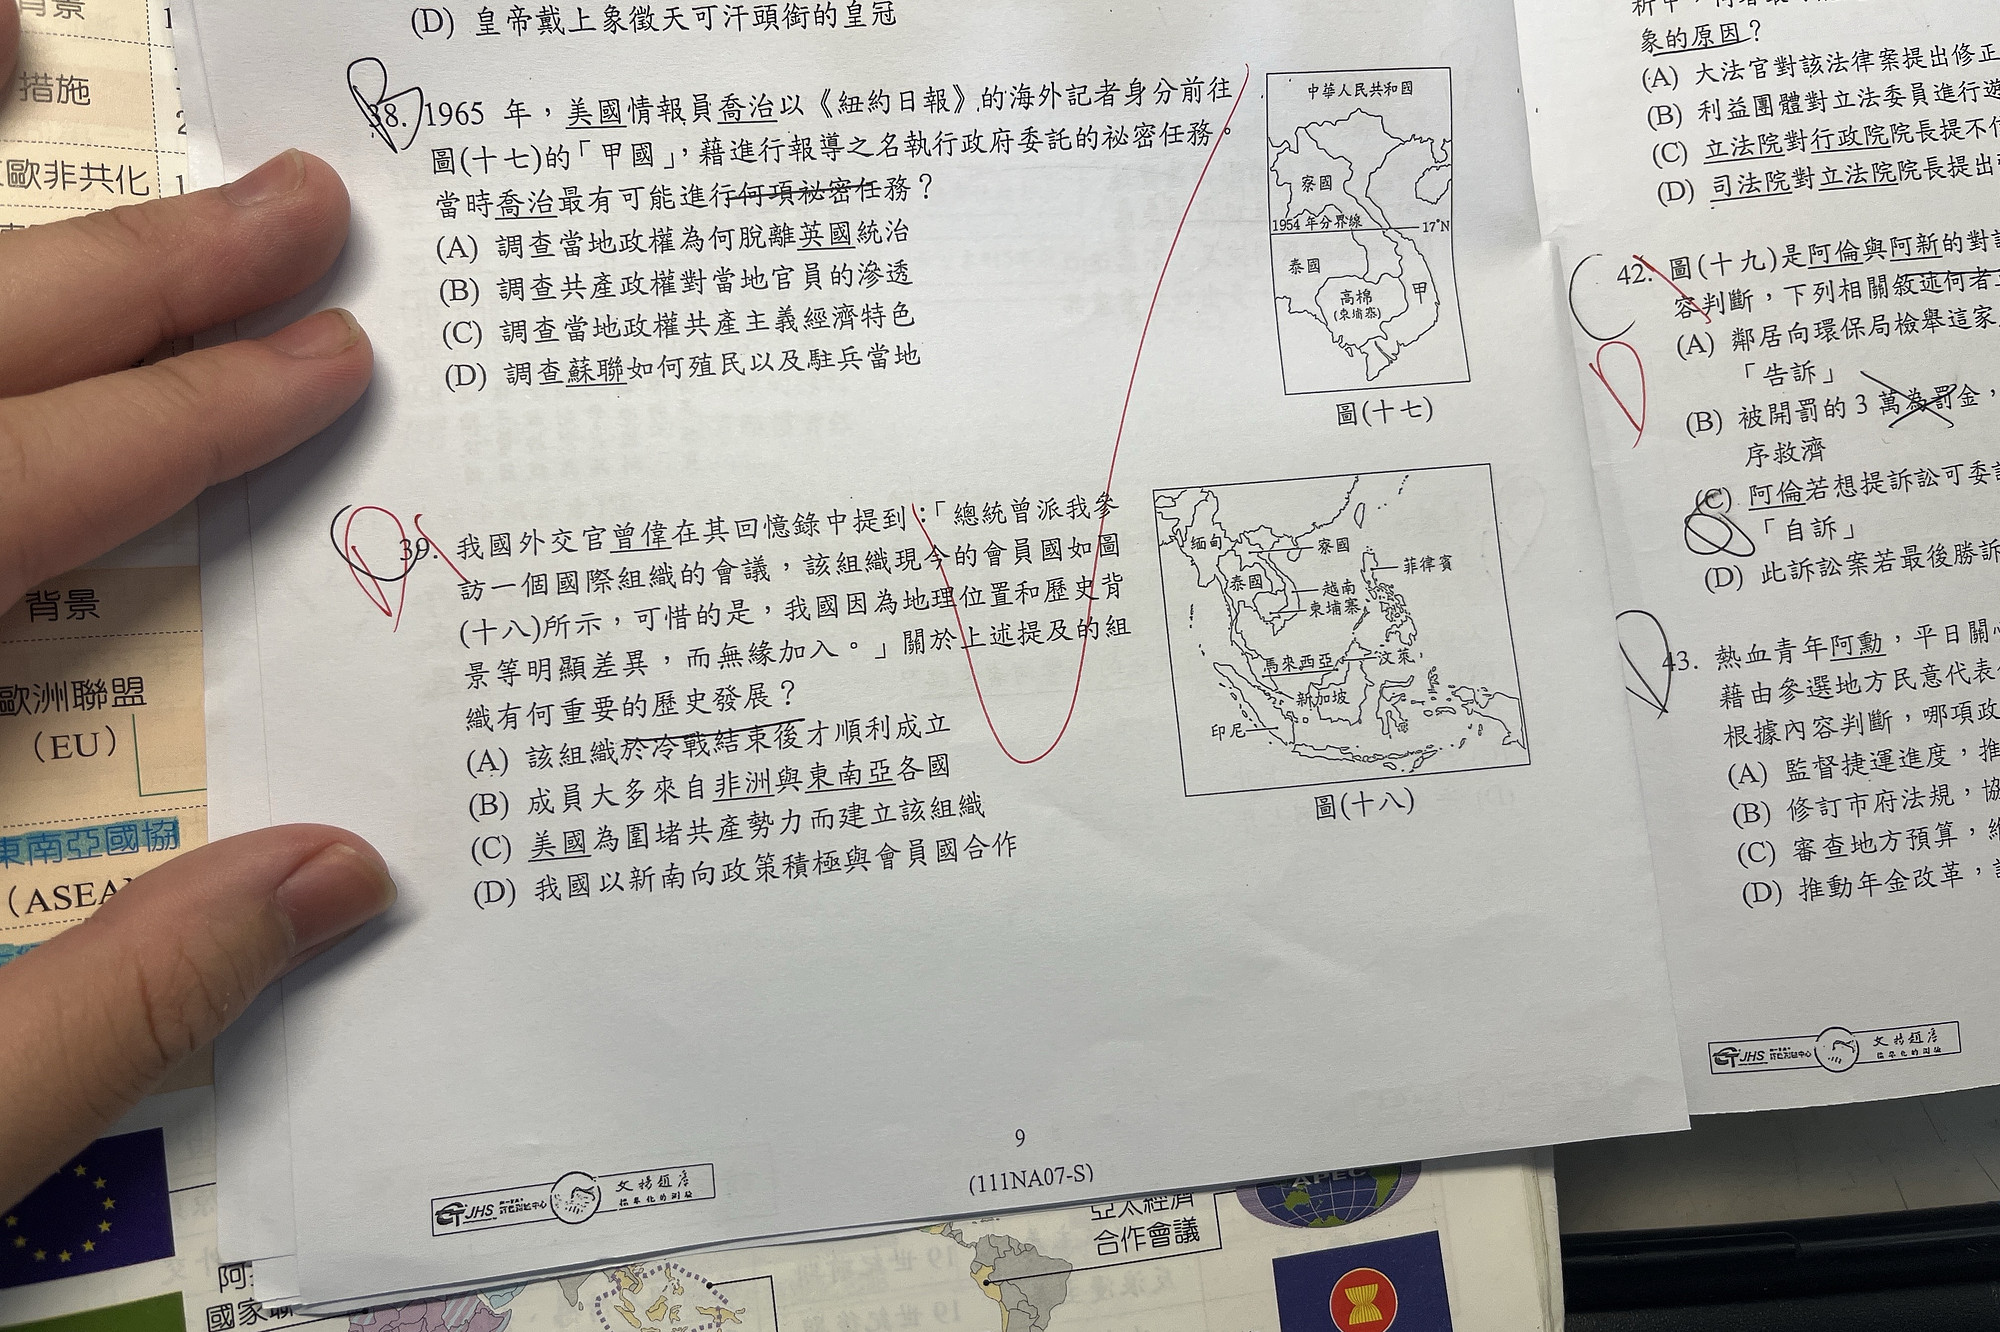 (D) 皇帝戴上象徵天可汗頭銜的皇冠
B
38. 1965 年，美國情報員喬治以《紐約日報》的海外記者身分前往
圖(十七)的「甲國」，藉進行報導之名執行政府委託的祕密任務。
當時喬治最有可能進行何項祕密任務？
(A) 調查當地政權為何脫離英國統治
(B) 調查共產政權對當地官員的滲透
(C) 調查當地政權共產主義經濟特色
(D) 調查蘇聯如何殖民以及駐兵當地
中華人民共和國
寮國
1954年分界線
17°N
泰國
高棉
(柬埔寨)
甲
圖(十七)
C D
39. 我國外交官曾偉在其回憶錄中提到：「總統曾派我參
訪一個國際組織的會議，該組織現今的會員國如圖
(十八)所示，可惜的是，我國因為地理位置和歷史背
景等明顯差異，而無緣加入。」關於上述提及的組
織有何重要的歷史發展？
(A) 該組織於冷戰結束後才順利成立
(B) 成員大多來自非洲與東南亞各國
(C) 美國為圍堵共產勢力而建立該組織
(D) 我國以新南向政策積極與會員國合作
緬甸
寮國
菲律賓
泰國
越南
柬埔寨
馬來西亞
汶萊
新加坡
印尼
圖(十八)
9
(111NA07-S)
JHS
文揚趙彥
標準化的測驗
象的原因？
(A) 大法官對該法律案提出修正
(B) 利益團體對立法委員進行遊
(C) 立法院對行政院院長提不信
(D) 司法院對立法院院長提出
C
D
42. 圖(十九)是阿倫與阿新的對話
容判斷，下列相關敘述何者
(A) 鄰居向環保局檢舉這家
「告訴」
(B) 被開罰的3萬為罰金，
序救濟
(C) 阿倫若想提訴訟可委
「自訴」
(D) 此訴訟案若最後勝訴
D
43. 熱血青年阿勳，平日關心
藉由參選地方民意代表
根據內容判斷，哪項政
(A) 監督捷運進度，推
(B) 修訂市府法規，協
(C) 審查地方預算，維
(D) 推動年金改革，
JHS
文揚趙彥
標準化的測驗
背景
措施
歐非共化
背景
歐洲聯盟
（EU）
東南亞國協
（ASEAN
阿
國家聯
亞太經濟
合作會議
APEC